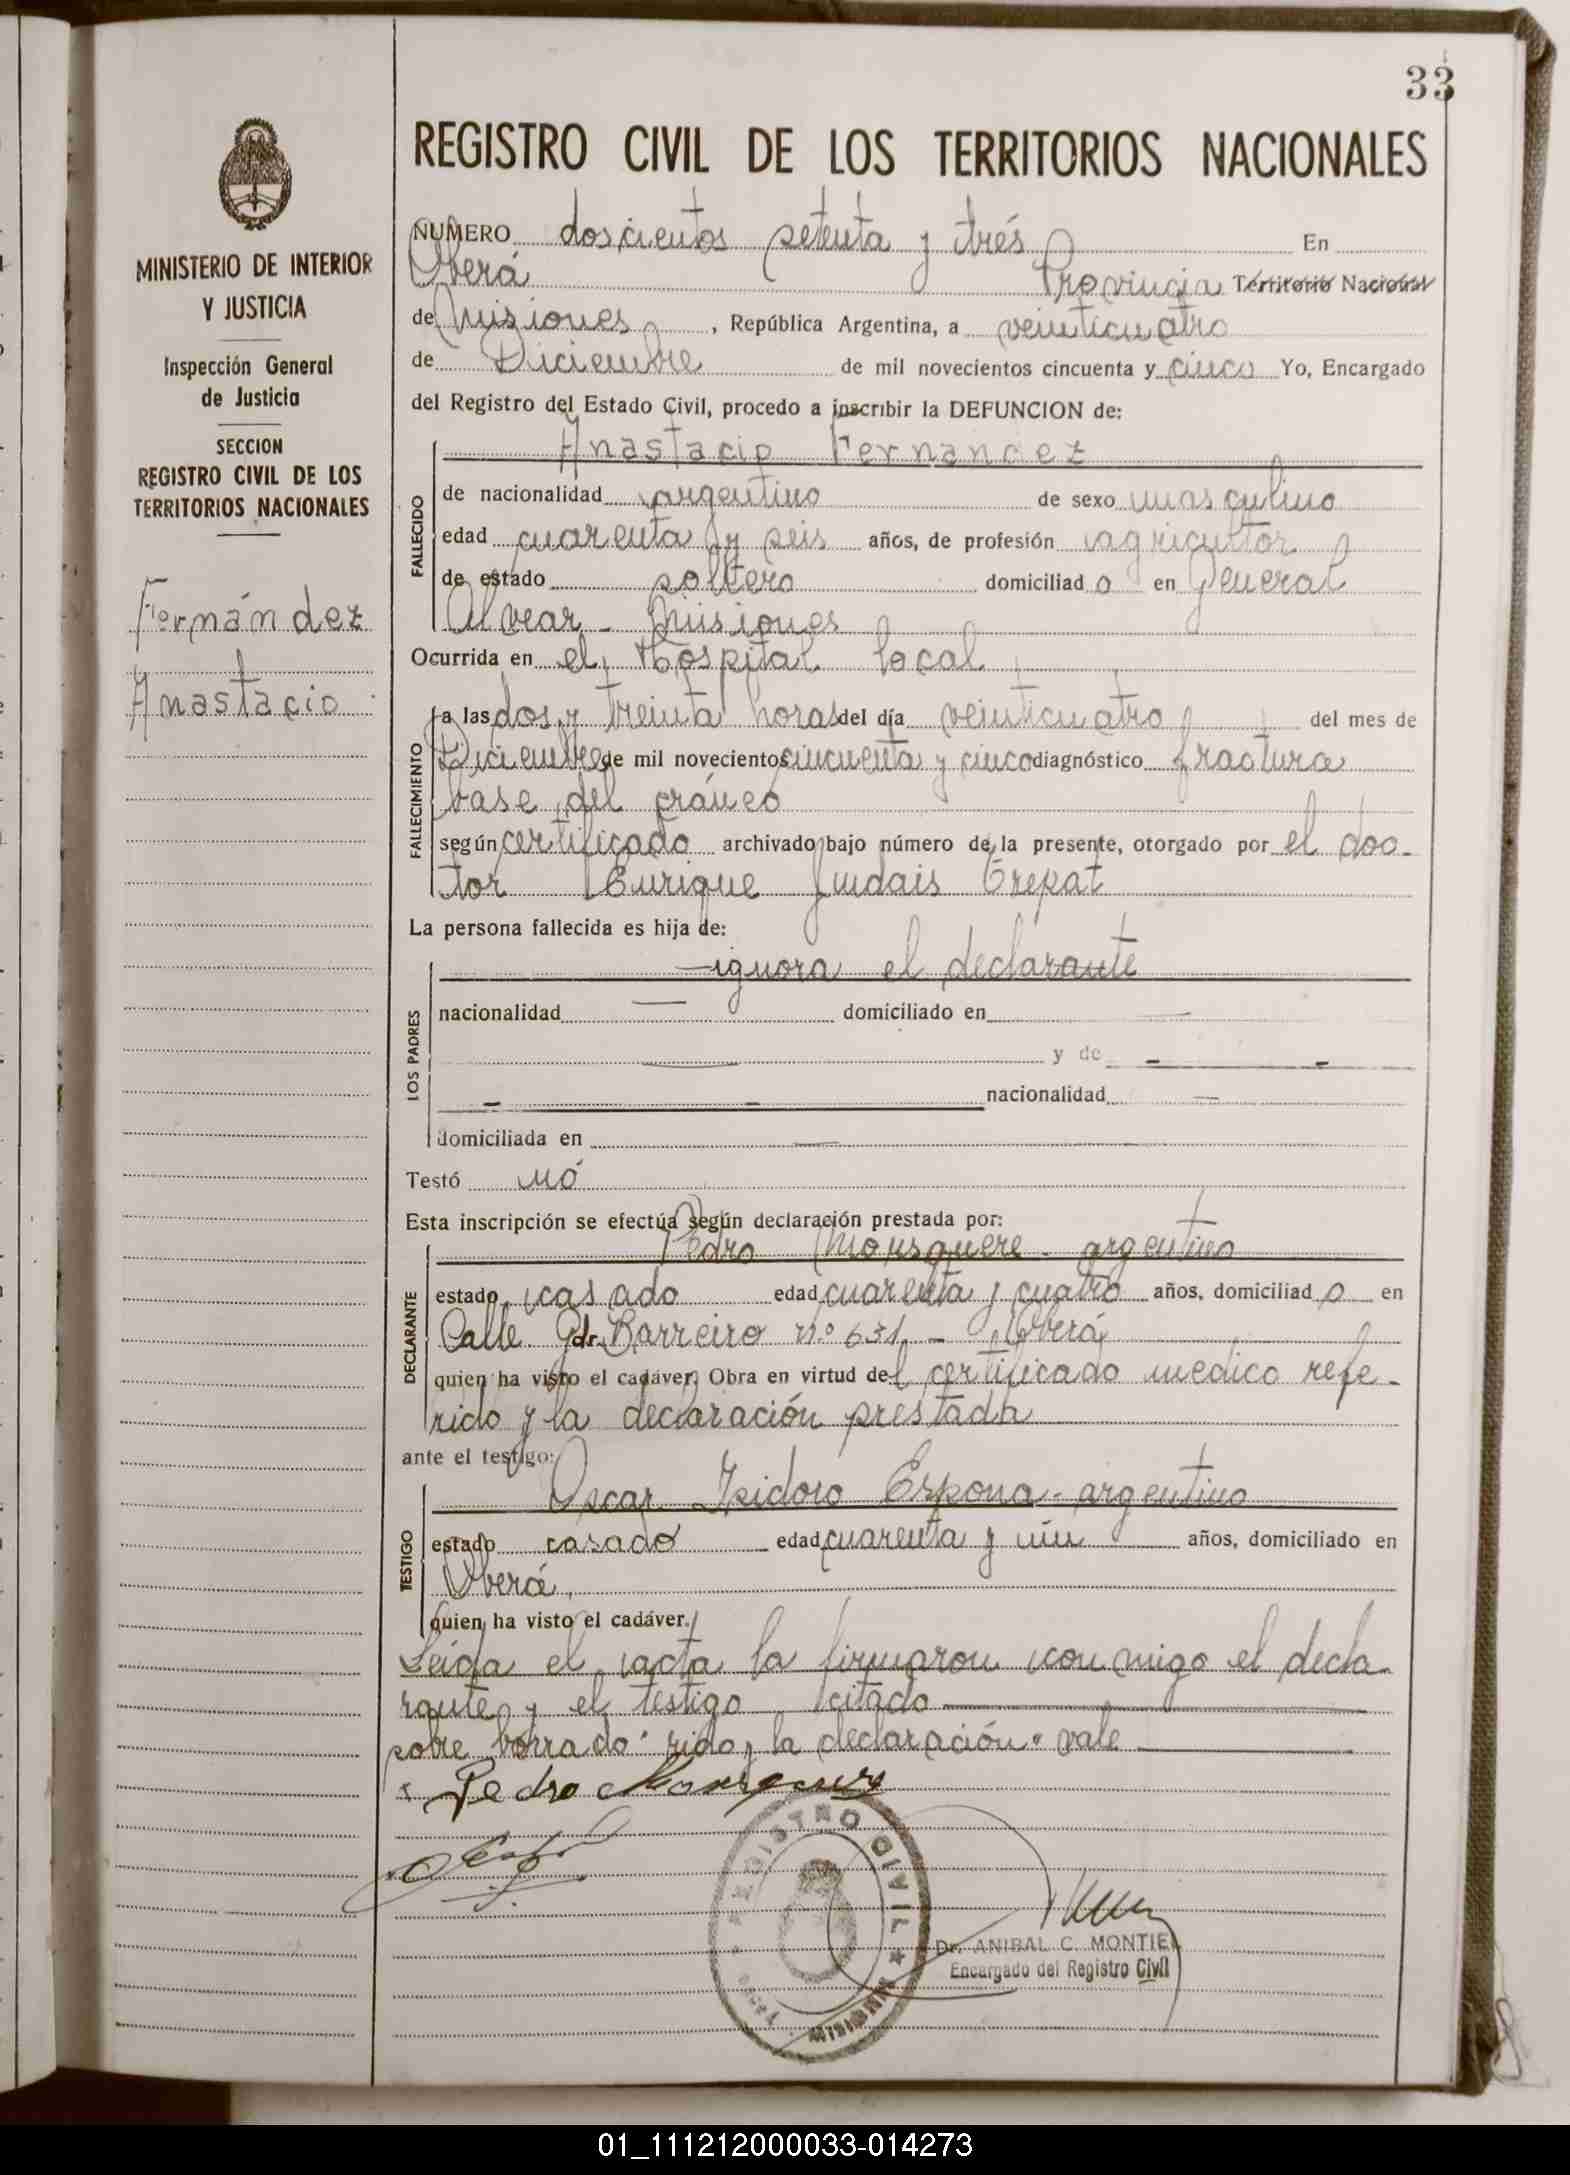 33
REGISTRO CIVIL DE LOS TERRITORIOS NACIONALES
MINISTERIO DE INTERIOR
Y JUSTICIA
Inspección General
de Justicia
SECCION
REGISTRO CIVIL DE LOS
TERRITORIOS NACIONALES
Fernández
Anastacio
NUMERO doscientos setenta y trés En
Oberá Provincia Territorio Nacional
de Misiones, República Argentina, a veinticuatro
de Diciembre de mil novecientos cincuenta y cinco Yo, Encargado
del Registro del Estado Civil, procedo a inscribir la DEFUNCION de:
Anastacio Fernandez
FALLECIDO
de nacionalidad argentino de sexo masculino
edad cuarenta y seis años, de profesión agricultor
de estado soltero domiciliado en General
Alvear - Misiones
Ocurrida en el Hospital local
FALLECIMIENTO
a las dos y treinta horas del día veinticuatro del mes de
Diciembre de mil novecientos cincuenta y cinco diagnóstico fractura
base del cráneo
según certificado archivado bajo número de la presente, otorgado por el doc-
tor Enrique
La persona fallecida es hija de:
—ignora el declarante
LOS PADRES
nacionalidad — domiciliado en —
— y de — -
- - nacionalidad —
domiciliada en —
Testó no
Esta inscripción se efectúa según declaración prestada por:
Pedro Mousquere - argentino
DECLARANTE
estado casado edad cuarenta y cuatro años, domiciliado en
Calle Gdr. Barreiro nº 631 - Oberá
quien ha visto el cadáver. Obra en virtud del certificado medico refe-
rido y la declaración prestada
ante el testigo:
Oscar Isidoro Espona - argentino
TESTIGO
estado casado edad cuarenta y un años, domiciliado en
Oberá.
quien ha visto el cadáver.
Leida el acta la firmaron conmigo el decla-
rante y el testigo citado
sobre borrado "rido y la declaración" vale
Pedro
REGISTRO CIVIL
MISIONES
Dr. ANIBAL C. MONTIEL
Encargado del Registro Civil
01_111212000033-014273